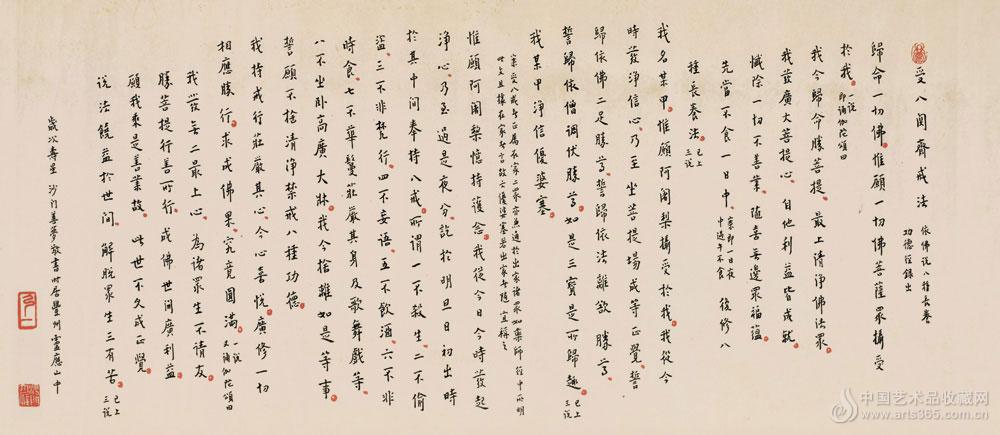 受八关斋戒法 依佛說八種長養功德經錄出
歸命一切佛惟願一切佛菩薩眾攝受
於我 一說 即誦伽陀頌曰
我今歸命勝菩提最上清淨佛法眾
我發廣大菩提心自他利益皆成就
懺除一切不善業隨喜無邊眾福蘊
先當不食一日中 案即一日夜中過午不食 後修八
種長養法 已上三說
我名某甲惟願阿闍梨攝受於我我從今
時發淨信心乃至坐菩提場成等正覺誓
歸依佛二足勝尊誓歸依法離欲勝尊
誓歸依僧調伏勝尊如是三寶是所歸趣 已上三說
我某甲淨信優婆塞
案受八戒者正屬在家二眾亦兼通於出家諸眾如藥師經中所明
此文且據在家者言故云優婆塞若出家者隨宜稱之
惟願阿闍梨憶持護念我從今日今時發起
淨心乃至過是夜分訖於明旦日初出時
於其中間奉持八戒所謂一不殺生二不偷
盜三不非梵行四不妄語五不飲酒六不非
時食七不華鬘莊嚴其身及歌舞戲等
八不坐臥高廣大牀我今捨離如是等事
誓願不捨清淨禁戒八種功德
我持戒行莊嚴其心令心喜悅廣修一切
相應勝行求成佛果究竟圓滿 一說 又誦伽陀頌曰
我發無二最上心為諸眾生不請友
勝菩提行善所行成佛世間廣利益
願我乘是善業故此世不久成正覺
說法饒益於世間解脫眾生三有苦 已上三說
歲次壽星沙門善夢敬書時居豐州靈應山中
中国艺术品收藏网
www.arts365.com.cn